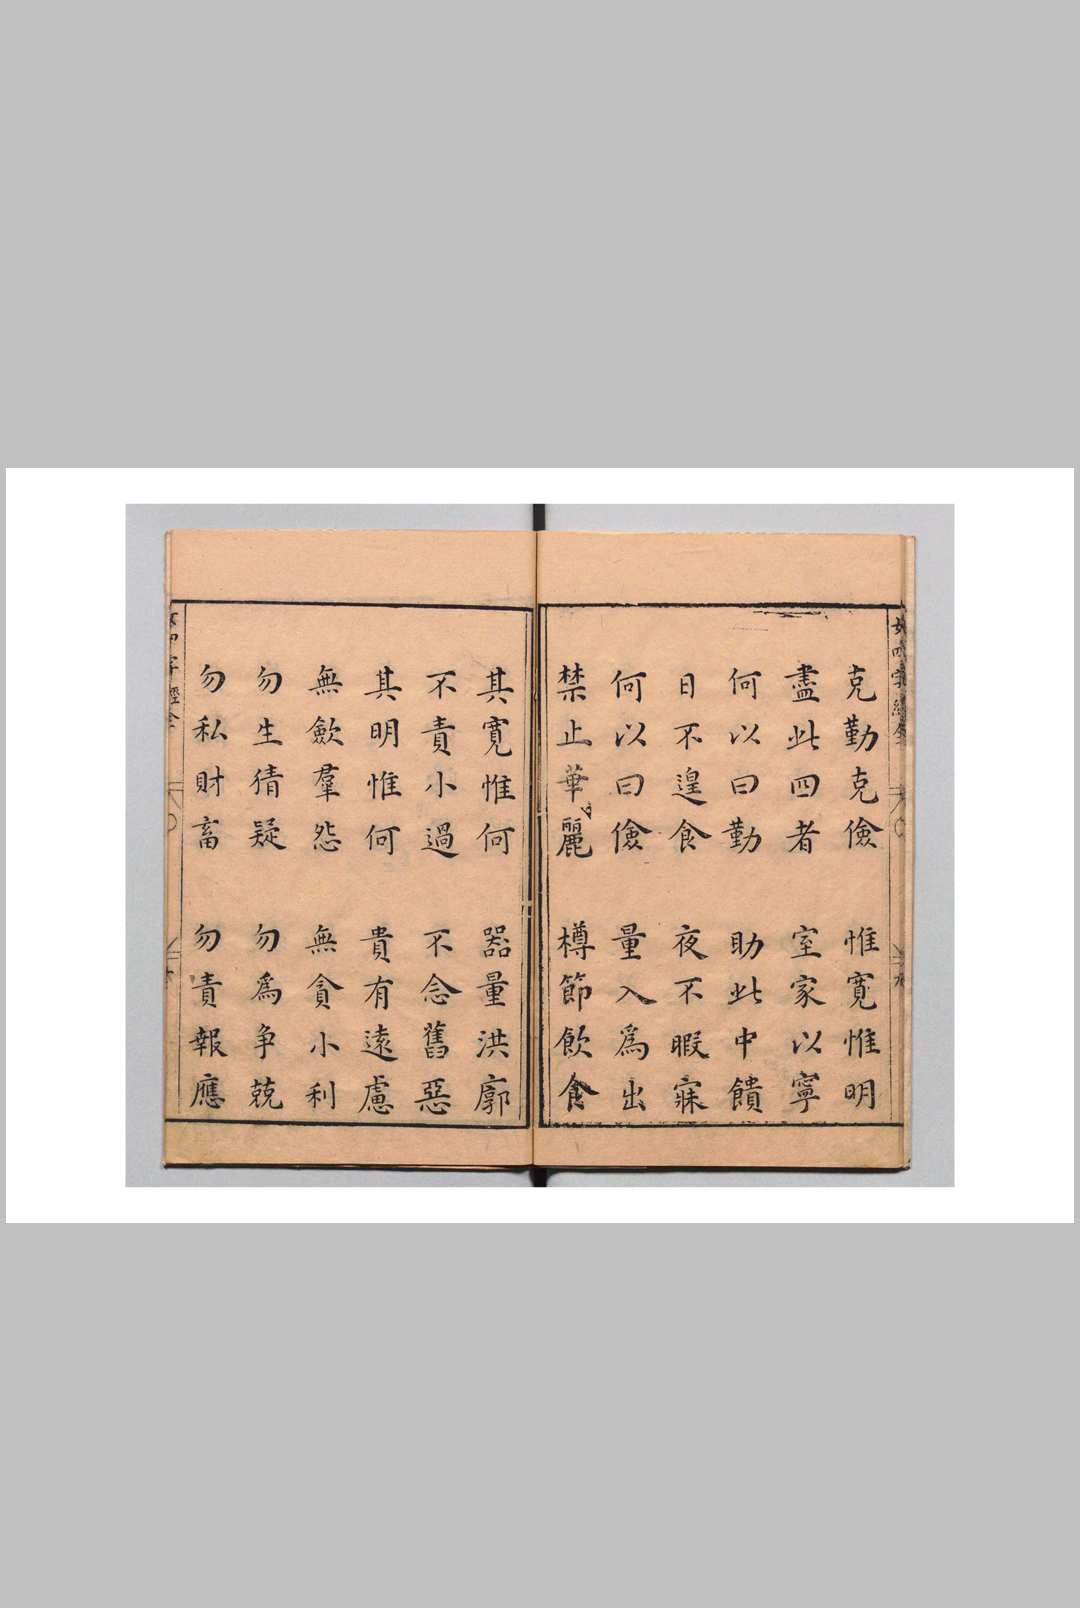 克勤克儉 惟寬惟明
盡此四者 室家以寧
何以曰勤 助此中饋
日不遑食 夜不暇寐
何以曰儉 量入爲出
禁止華麗 樽節飲食
其寬惟何 器量洪廓
不責小過 不念舊惡
其明惟何 貴有遠慮
無歛羣怨 無貪小利
勿生猜疑 勿爲争兢
勿私財畜 勿責報應